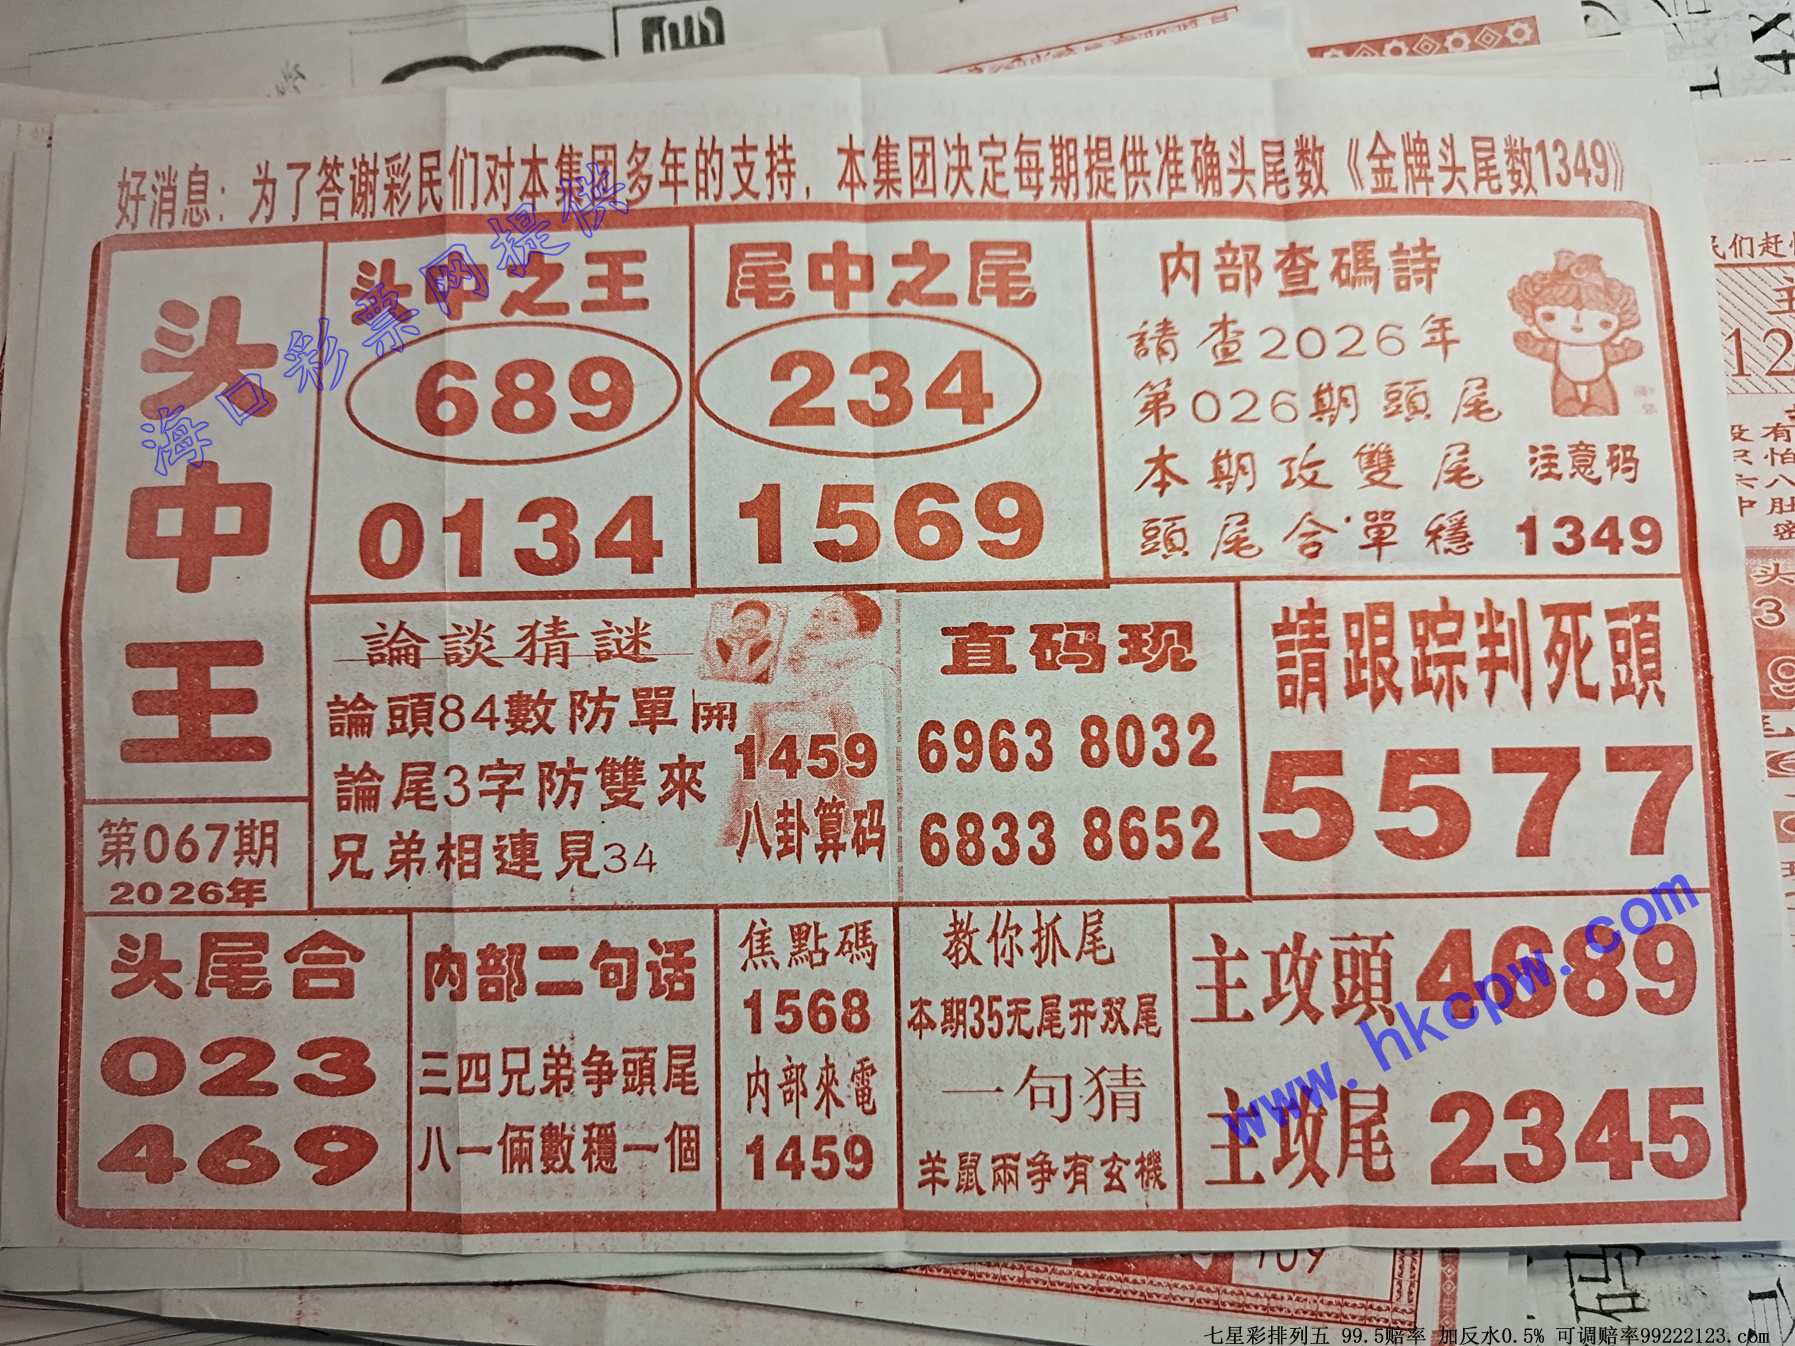 好消息：为了答谢彩民们对本集团多年的支持，本集团决定每期提供准确头尾数《金牌头尾数1349》
头中王
第067期
2026年
头中之王
689
0134
尾中之尾
234
1569
内部查碼詩
請查2026年
第026期頭尾
本期攻雙尾
頭尾合單穩
注意码
1349
論談猜謎
論頭84數防單開
論尾3字防雙來
兄弟相連見34
1459
八卦算码
直码现
6963 8032
6833 8652
請跟踪判死頭
5577
头尾合
023
469
内部二句话
三四兄弟争頭尾
八一倆數穩一個
焦點碼
1568
内部來電
1459
教你抓尾
本期35无尾开双尾
一句猜
羊鼠兩争有玄機
主攻頭 4689
主攻尾 2345
海口彩票网提供
www.hkcpw.com
民们赶
主
12
没有
怕
六八
中肚
密
头
3
9
码
109
4X
七星彩排列五 99.5赔率 加反水0.5% 可调赔率99222123.com